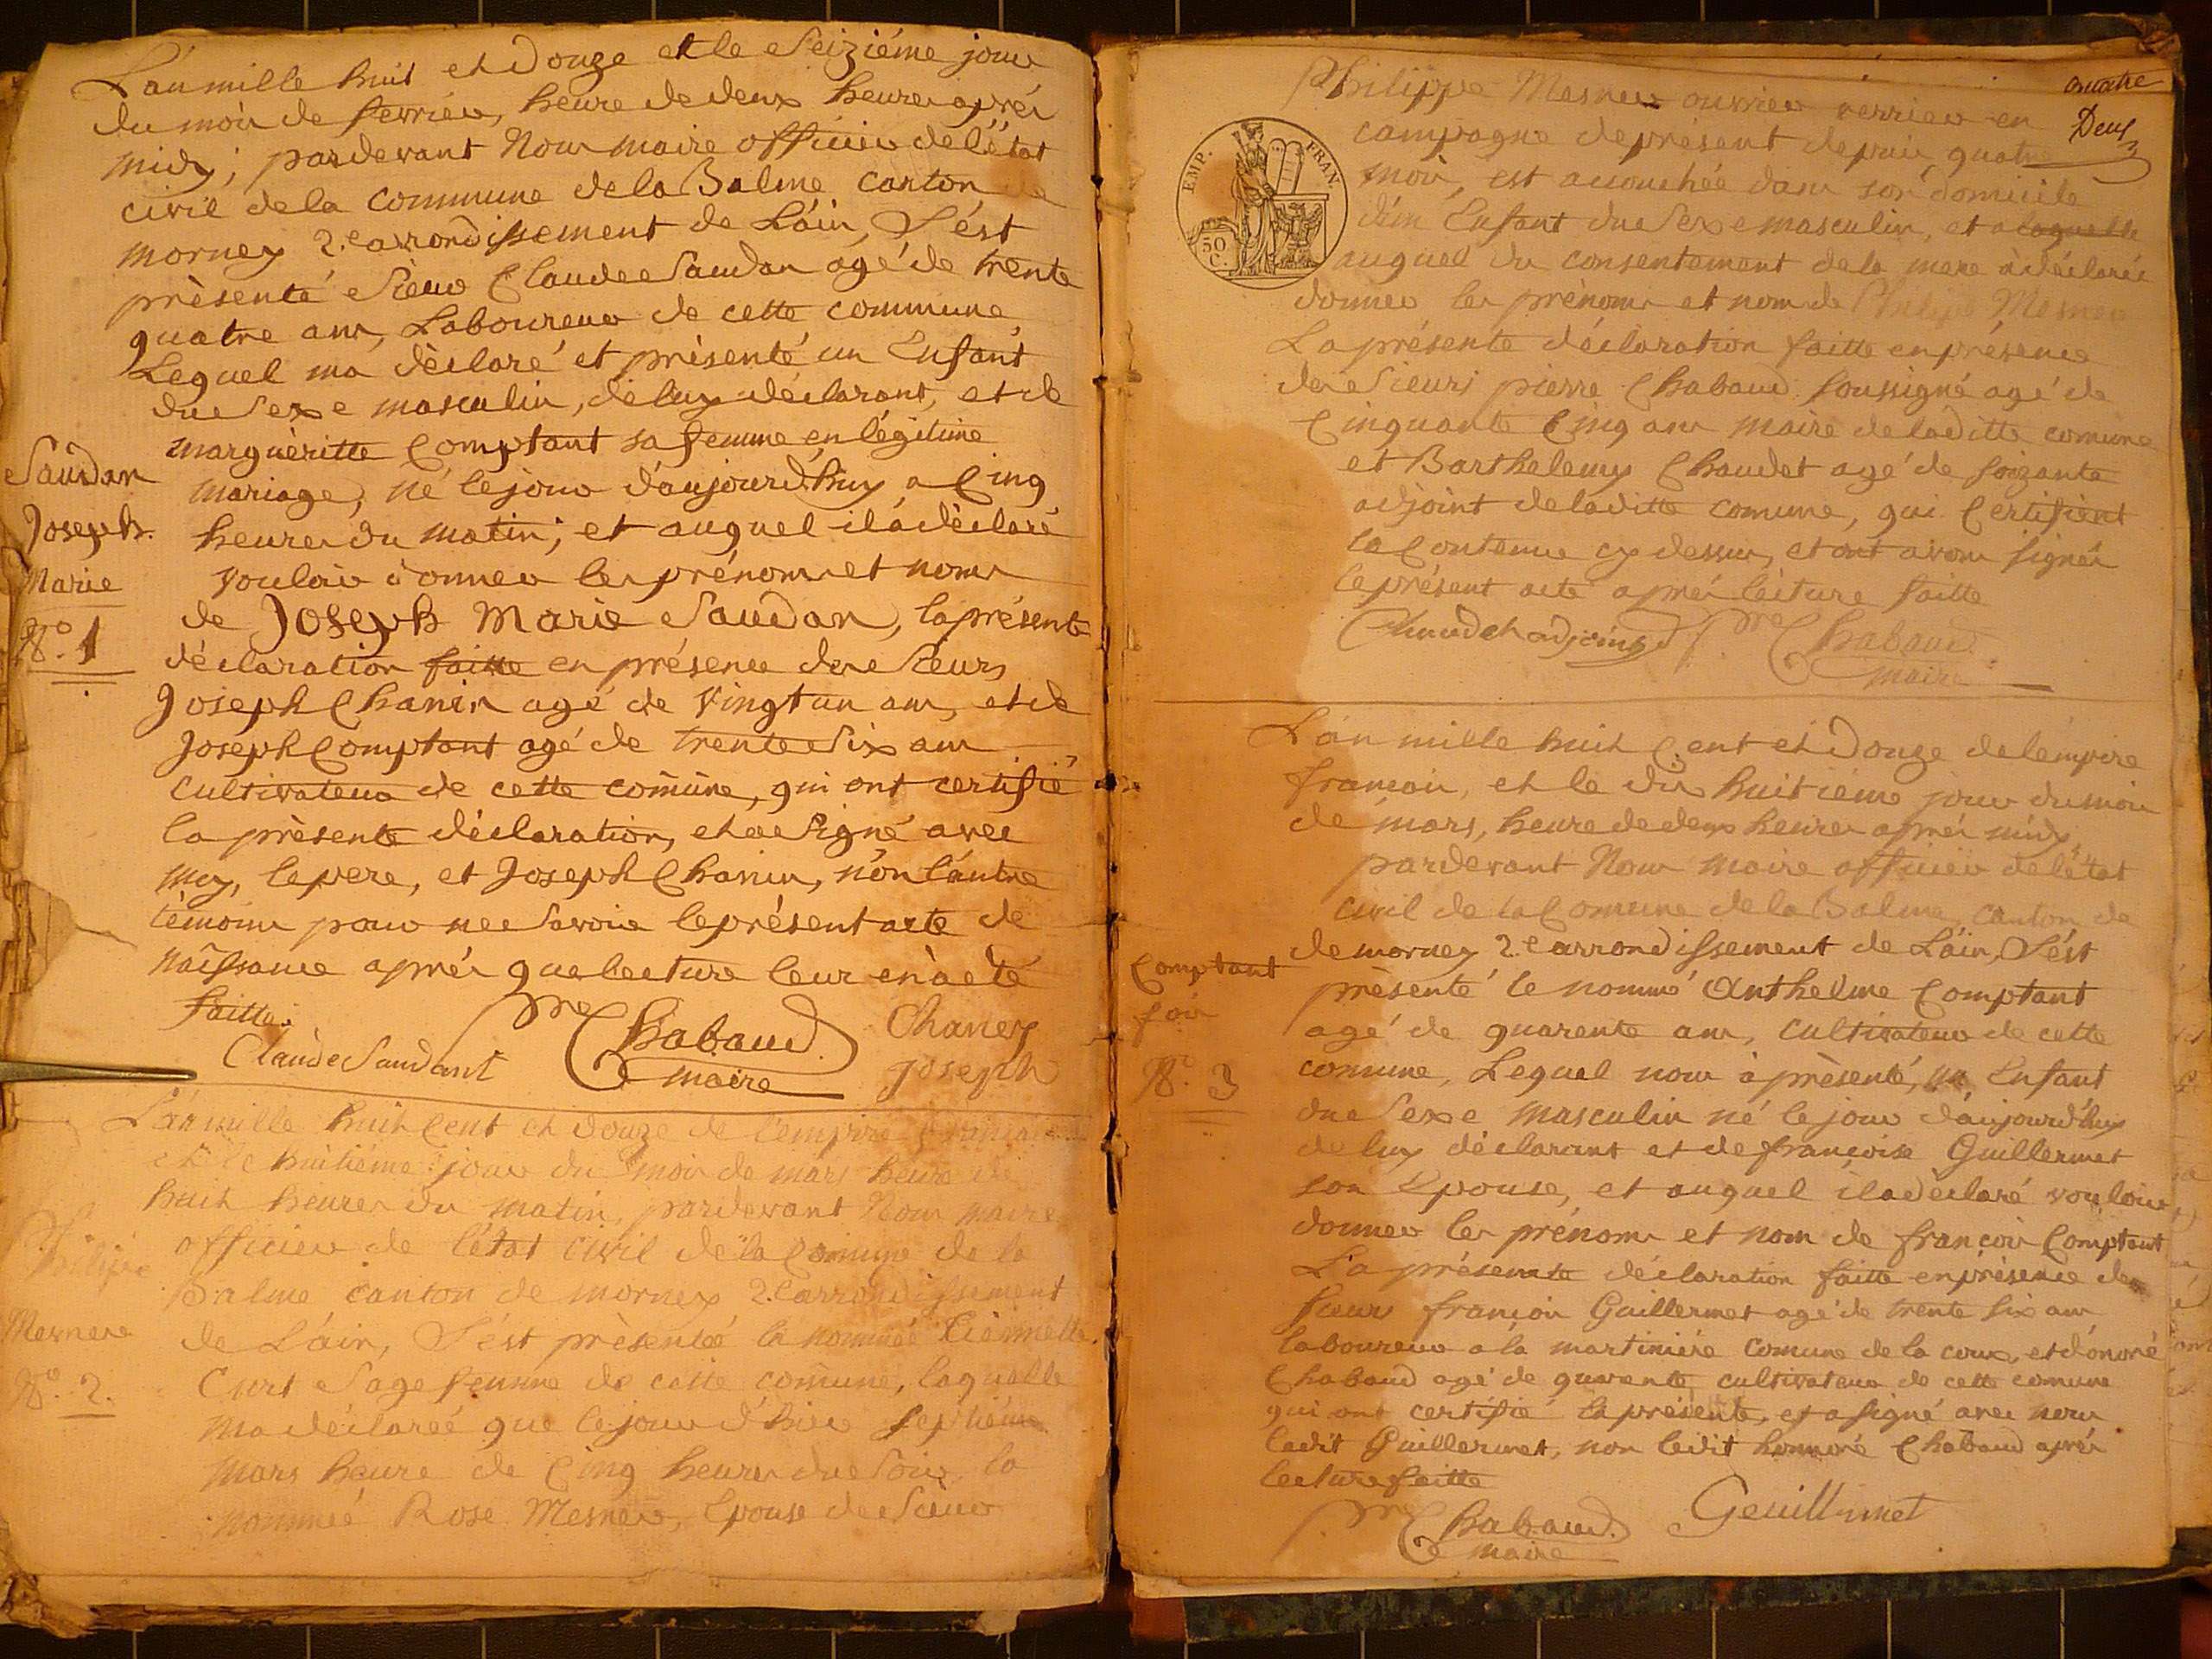 L'an mille huit et Douze et le Seiziéme jour
du mois de fevrier, heure de deux heures aprés
midy, pardevant Nous maire officier de l'état
civil de la commune de la Balme canton de
mornay 2.e arrondissement de L'ain, S'ést
présenté Sieur Claude Saudan agé de trente
quatre ans, Laboureur de cette commune,
Lequel m'a déclaré et présenté un Enfant
du Sexe masculin, de luy déclarant, et de
marguèritte Comptant sa femme en légitime
mariage, né le jour d'aujourd'huy a Cinq
heures du matin; et auquel il a dèclaré
vouloir donner les prénoms et noms
de Joseph Marie Saudan, la présente
déclaration faitte en présence des Sieurs
Joseph Chanin agé de Vingt un ans, et de
Joseph Comptant agé de trente Six ans
cultivateurs de cette comùne, qui ont certifié
la prèsente déclaration, et ont Signé avec
moy, le pere, et Joseph Chanin, non l'autre
tèmoins pour ne Savoir le présent acte de
naissance aprés que lecture leur en a eté
faitte.
Claude Saudant
Pre Chabaud maire
Chaney Joseph
Saudan
Joseph
Marie
No. 1
L'an mille huit Cent et douze de l'empire francais
et le huitiéme jour du mois de mars heure de
huit heures du matin, pardevant Nous maire
officier de l'état civil de la Comune de la
Balme canton de mornay 2.e arrondissement
de L'ain, S'ést prèsenteé la nommeé Etiennette
Curt Sage femme de cette comune, laquelle
m'a déclareé que le jour d'hier Septiéme
mars heure de Cinq heures du Soir, la
nommeé Rose Mesner, Epouse de Sieur
Philipe
Mesnere
No. 2.
quatre
Deux
EMP. FRAN.
50 C.
Philippe Mesner ouvrier verrier en
campagne deprésent depuis quatre
mois, est accouchée dans son domicile
d'un Enfant du Sexe masculin, et a laquelle
auquel du consentement de la mere a déclaréé
donner les prénoms et nom de Philipe Mesner
La présente déclaration faitte en présence
des Sieurs pierre Chabaud soussigné agé de
Cinquante Cinq ans maire de laditte comune
et Barthelemy Chaudet agé de soizante
adjoint de laditte comune, qui Certifient
la Contenue cy dessus, et ont avons signés
le présent acte aprés lécture faitte
Chaudet adjoint
Pre Chabaud
maire
L'an mille huit Cent et Douze de l'émpire
francois, et le dix huitiéme jour du mois
de mars, heure de deux heures aprés midy,
pardevant Nous maire officier de l'état
civil de la Comune de la Balme, canton de
de mornay 2.e arrondissement de L'ain, S'ést
prèsenté le nommé Anthelme Comptant
agé de quarente ans, cultivateur de cette
comune, Lequel nous à prèsenté, un Enfant
du Sexe masculin né le jour d'aujourd'huy
de luy déclarant et de françoise Guillermet
son Epouse, et auquel il a déclaré vouloir
donner les prénoms et nom de françois Comptant
La présente déclaration faitte en présence des
sieurs françois Guillermet agé de trente six ans
laboureur a la martiniére comune de la coux, et d'onoré
Chabaud agé de quarente, cultivateur de cette comune
qui ont certifié la présente, et a signé avec nous
ledit Guillermet, non ledit honnoré Chabaud aprés
lecture faitte
Pre Chabaud.
maire
Geuillirmet
Comptant
fois
No. 3